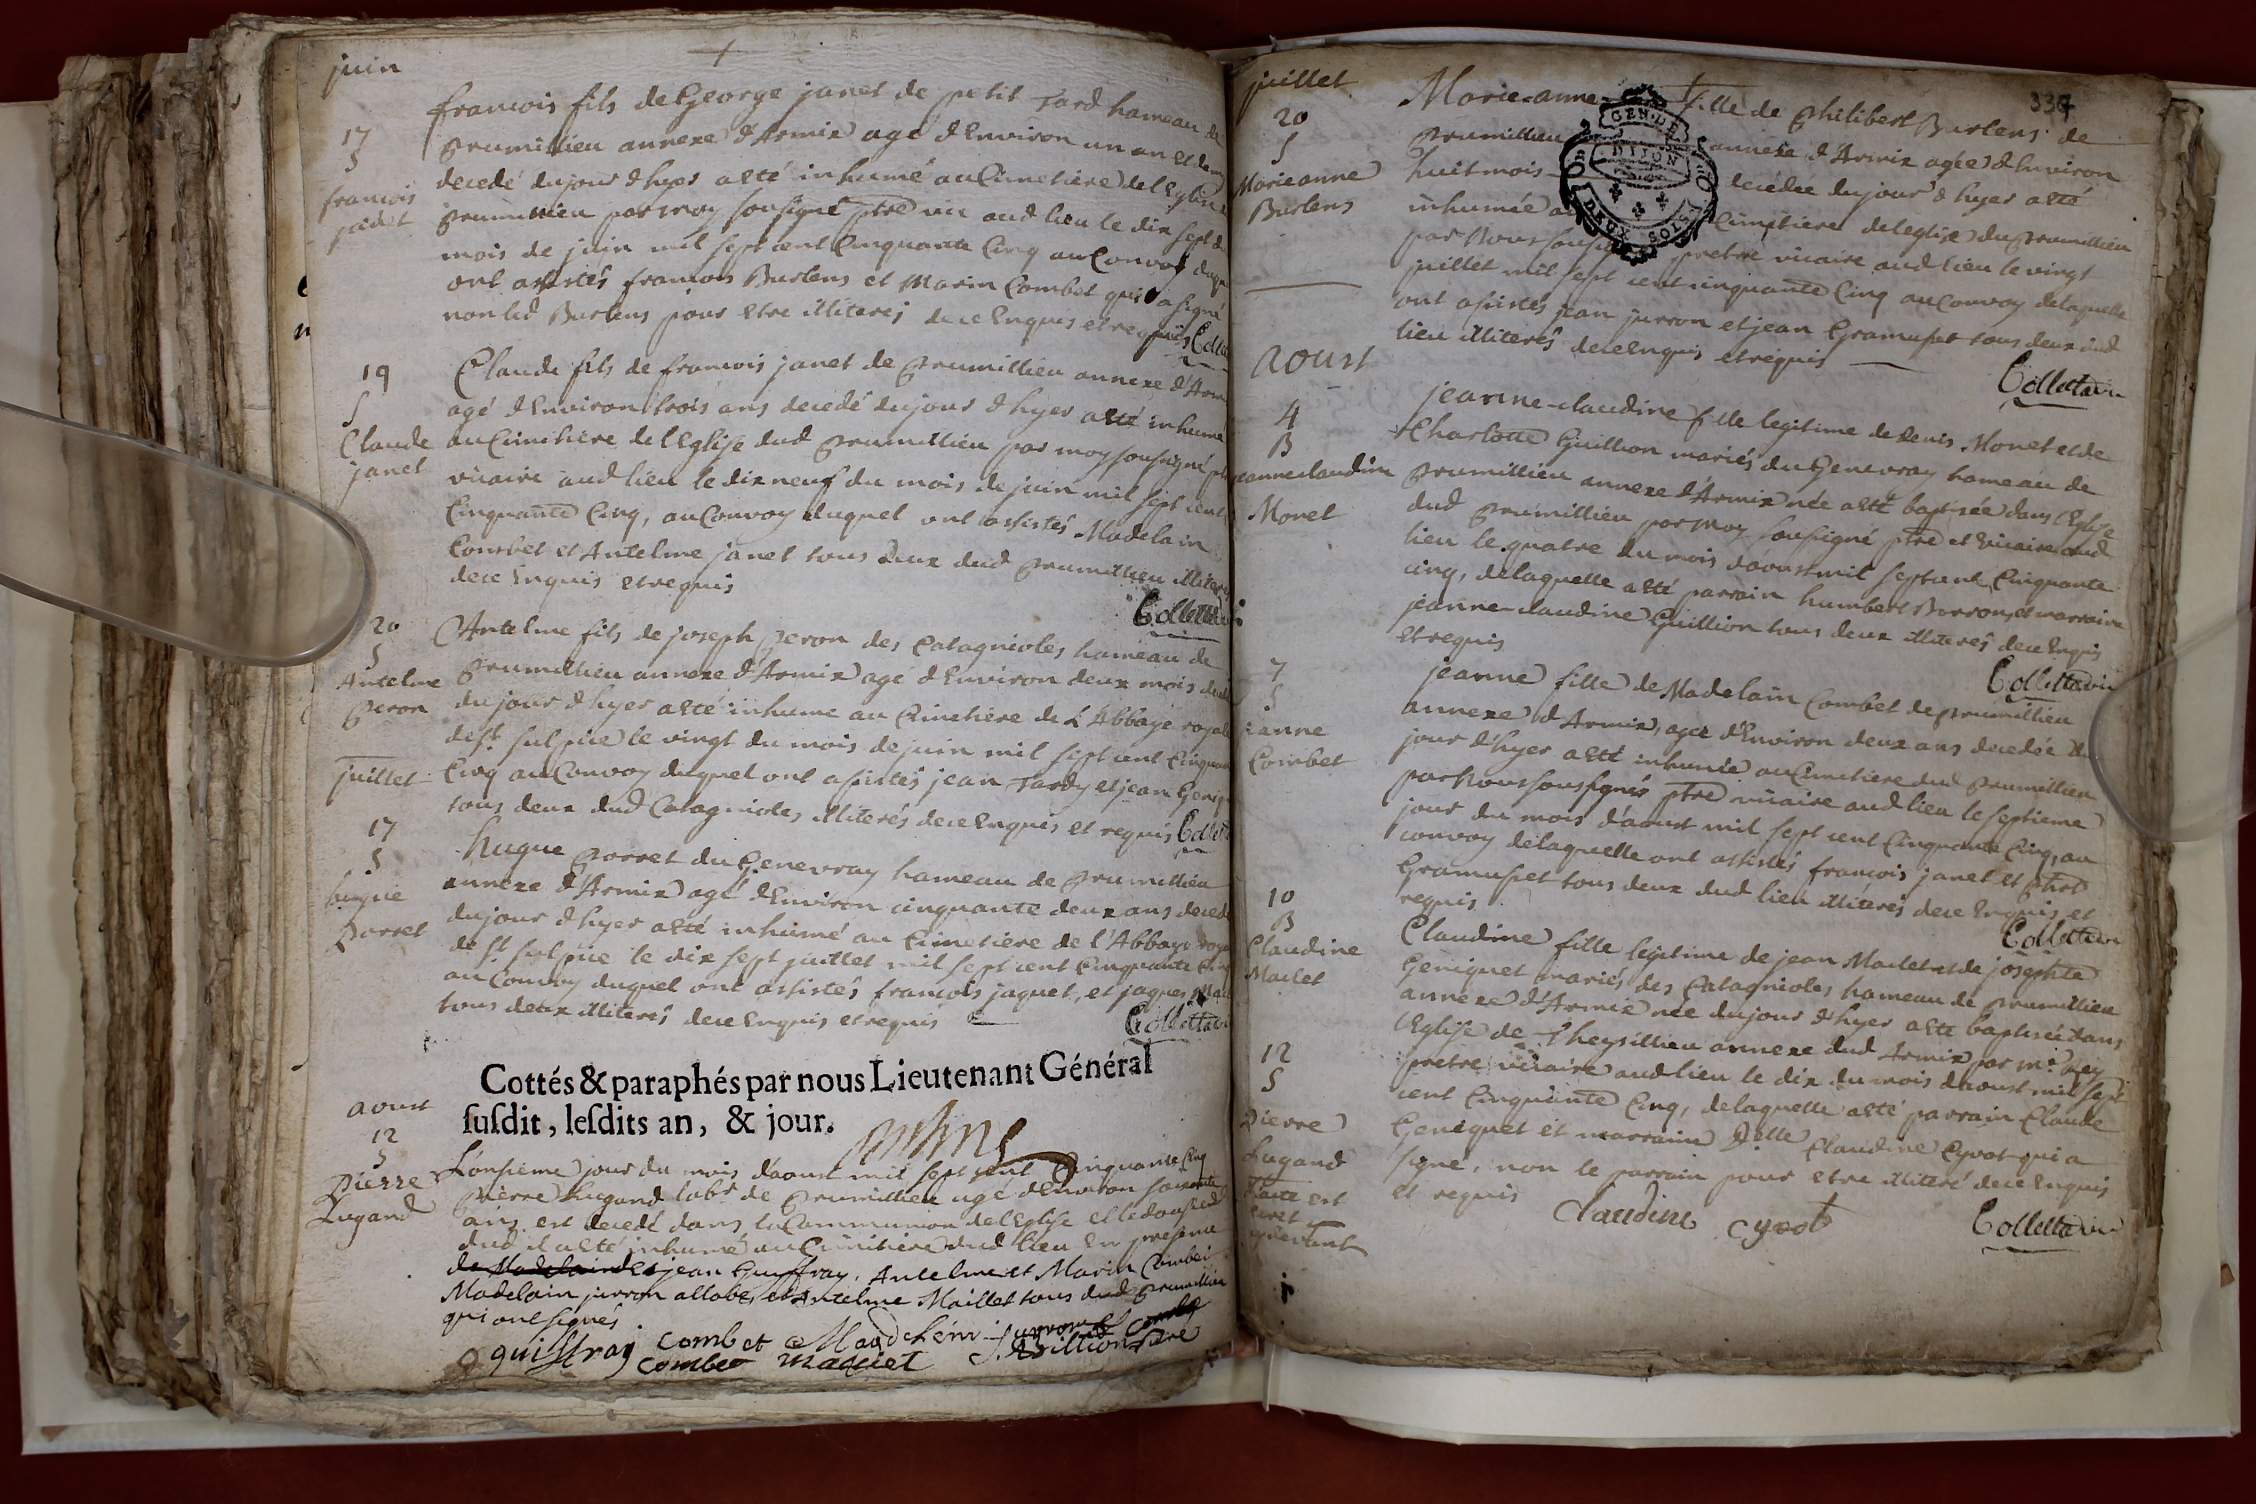 juin
françois fils de George janet de petit Tard hameau de
17
prumillieu annexe d'Armix agé d'Environ un an et demy
S
decedé du jour d'hyer a esté inhumé au Cimetiere de l'Eglise
françois
prumillieu par moy sousigné ptre vic aud lieu le dix sept d
janet
mois de juin mil sept cent Cinquante Cinq au Convoy duque
ont assistés francois Burlens et Marin Combet qui a signé
non led Burlens pour etre illiteres de ce Enquis et requis Collet
19
Claude fils de francois janet de prumillieu annexe d'Arm
S
agé d'Environ trois ans decedé du jour d'hyer a esté inhumé
Claude
au Cimetiere de l'Eglise dud prumillieu par moy sousigné ptre
janet
vicaire aud lieu le dix neuf du mois de juin mil sept cent
Cinquante Cinq, au Convoy duquel ont assistés Madelain
Combet et Antelme janet tous deux dud prumillieu illiteres
de ce Enquis et requis
Collettavi
20
Antelme fils de joseph peron des Catagnioles hameau de
S
prumillieu annexe d'Armix agé d'Environ deux mois decedé
Antelme
du jour d'hyer a esté inhume au Cimetiere de L'Abbaye royale
peron
de St sulpice le vingt du mois de juin mil sept cent Cinquante
juillet
Cinq au Convoy duquel ont assistés jean Tardy et jean Geni
tous deux dud Catagnioles, illiterés de ce Enquis et requis Collet
17
hugue porret du Genevray hameau de prumillieu
S
annexe d'Armix agé d'Environ cinquante deux ans decedé
hugue
du jour d'hyer a esté inhumé au Cimetiere de l'Abbaye roya
porret
de St sulpice le dix sept juillet mil sept cent Cinquante Cinq
au Convoy duquel ont assistés francois jaquet, et jaques Mail
tous deux illiterés de ce Enquis et requis
Collettavi
Cottés & paraphés par nous Lieutenant Général
susdit, lesdits an, & jour.
aoust
12
S
L'onsieme jour du mois d'aoust mil sept cent Cinquante Cinq
Pierre
Pierre Lugand labr de prumillieu agé d'Environ soixante
Lugand
ans est decedé dans la Communion de l'Eglise et le dousieme
dud il a esté inhumé au Cimitiere dud lieu En presence
de Madelaind et jean Guiffray, Antelme et Marin Combet
Madelain jurron allobe, et Antelme Maillet tous dud prumillieu
qui ont signés
guiffray Combet Magdelein
Combet maillet
juillet
337
20
Marie-anne fille de philibert Burlens de
S
prumillieu annexe d'Armix agée d'Environ
Marieanne
huit mois decedée du jour d'hyer a esté
Burlens
inhumée au Cimetiere de leglise du prumillieu
par Nous sousigné pretre vicaire aud lieu le vingt
juillet mil sept cent cinquante Cinq au Convoy de laquelle
ont assistés jean jurron et jean Gramuset tous deux dud
lieu illiterés de ce Enquis et requis
Aoust
Collettavi
4
jeanne-claudine fille legitime de Denis Monet et de
B
Charlotte Guillion mariés du Genevray hameau de
jeanneclaudine
prumillieu annexe d'Armix née a esté baptisée dans l'Eglise
Monet
dud prumillieu par moy sousigné ptre et vicaire aud
lieu le quatre du mois d'aoust mil sept cent Cinquante
cinq, de laquelle a esté parrain humbert Borron, et marraine
jeanne-claudine Guillion tous deux illiterés de ce Enquis
et requis
Collettavi
7
jeanne fille de Madelain Combet de prumillieu
S
annexe d'Armix, agée d'Environ deux ans decedée du
jeanne
jour d'hyer a esté inhumée au Cimetiere dud prumillieu
Combet
par Nous sousignés ptre vicaire aud lieu le septieme
jour du mois d'aoust mil sept cent Cinquante Cinq, au
convoy de laquelle ont assistés françois janet et phibt
Gramuset tous deux dud lieu illiterés de ce Enquis et
requis
Collettavi
10
Claudine fille legitime de jean Maclet et de josephte
B
Geniquet mariés des Catagnioles hameau de prumillieu
Claudine
annexe d'Armix née du jour d'hyer a esté baptisée dans
Maclet
l'Eglise de Theysillieu annexe dud Armix par mr Rey
pretre vicaire aud lieu le dix du mois d'aoust mil sept
cent Cinquante Cinq, de laquelle a esté parrain Claude
Geniquet et marraine Dlle Claudine Cyvot qui a
signé, non le parrain pour etre illiteré de ce Enquis
et requis
12
S
Pierre
Lugand
l'acte est
cydevant
Claudine cyvot
Collettavi
GEN. DE
DIJON
DEUX SOLS